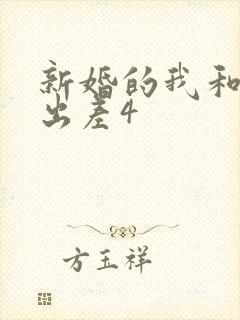 新婚的我和
出差4
方玉祥